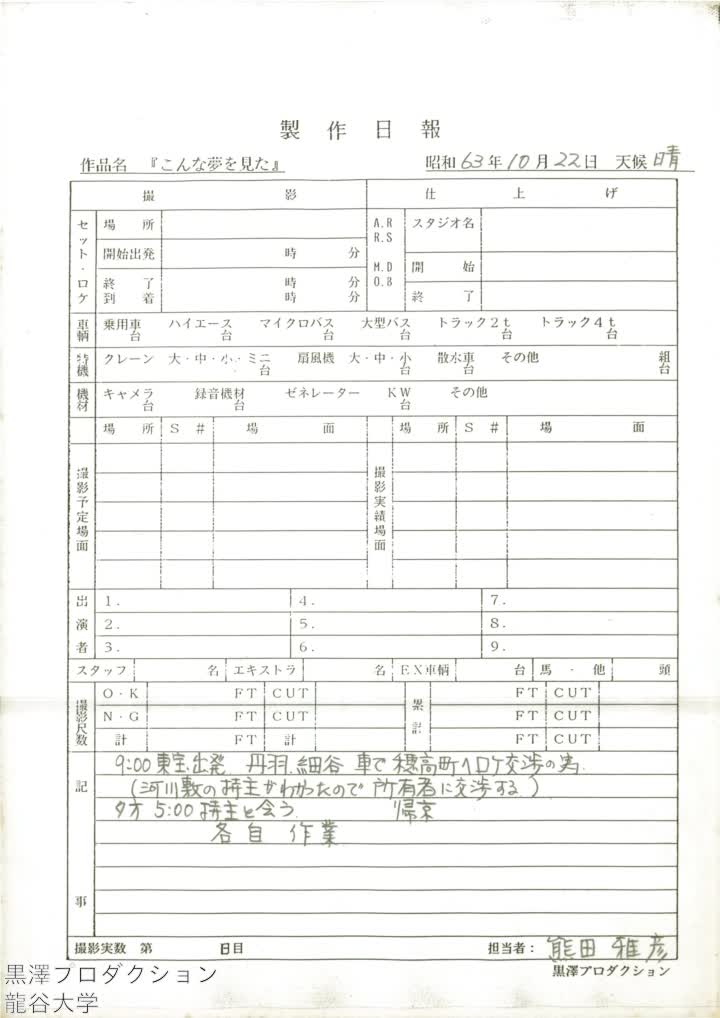 製作日報
作品名 『こんな夢を見た』 昭和63年10月22日 天候 晴
撮影 仕上げ
セット・ロケ 場所 A.R R.S M.D O.B スタジオ名
開始出発 時 分 開始
終了 時 分 終了
到着 時 分
車輌 乗用車 台 ハイエース 台 マイクロバス 台 大型バス 台 トラック2t 台 トラック4t 台
特機 クレーン 大・中・小・ミニ 台 扇風機 大・中・小 台 散水車 台 その他 組 台
機材 キャメラ 台 録音機材 台 ゼネレーター KW 台 その他
撮影予定場面 場所 S# 場面 撮影実績場面 場所 S# 場面
出演者 1. 4. 7.
2. 5. 8.
3. 6. 9.
スタッフ 名 エキストラ 名 EX車輌 台 馬・他 頭
撮影尺数 O・K FT CUT 累計 FT CUT
N・G FT CUT FT CUT
計 FT 計 FT CUT
記事
9:00 東宝出発 丹羽、細谷 車で穂高町へロケ交渉の為
(河川敷の持主がわかったので所有者に交渉する)
夕方 5:00 持主と会う 帰京
各自 作業
撮影実数 第 日目 担当者: 熊田 雅彦
黒澤プロダクション
黒澤プロダクション
龍谷大学